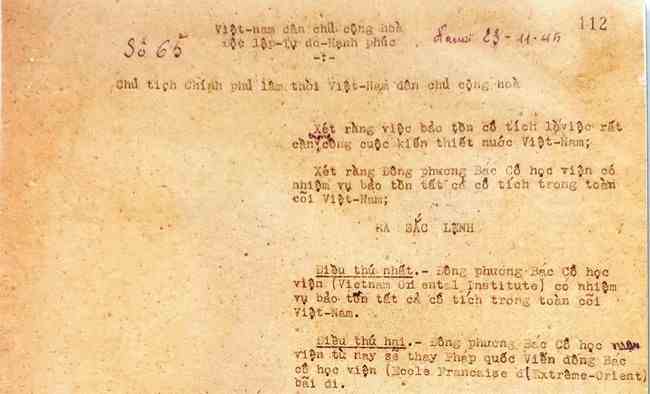 112
Việt-nam dân chủ cộng hoà
Số 65
Độc lập-Tự do-Hạnh phúc
Hanoi 23-11-45
-:-
Chủ tịch Chính phủ lâm thời Việt-Nam dân chủ cộng hoà
Xét rằng việc bảo tồn cổ tích là việc rất
cần trong công cuộc kiến thiết nước Việt-Nam;
Xét rằng Đông phương Bác Cổ học viện có
nhiệm vụ bảo tồn tất cả cổ tích trong toàn
cõi Việt-Nam;
RA SẮC LỆNH
Điều thứ nhất.- Đông phương Bác Cổ học
viện (Vietnam Oriental Institute) có nhiệm
vụ bảo tồn tất cả cổ tích trong toàn cõi
Việt-Nam.
Điều thứ hai.- Đông phương Bác Cổ học viện
viện từ nay sẽ thay Pháp quốc Viễn đông Bác
cổ học viện (Ecole Francaise d(Extrême-Orient)
bãi đi.